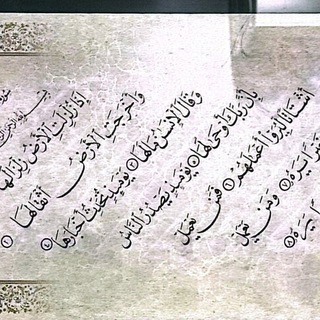 إِذَا زُلْزِلَتِ الْأَرْضُ زِلْزَالَهَا
وَأَخْرَجَتِ الْأَرْضُ أَثْقَالَهَا ٢
وَقَالَ الْإِنسَانُ مَا لَهَا ٣ يَوْمَئِذٍ تُحَدِّثُ أَخْبَارَهَا ٤
بِأَنَّ رَبَّكَ أَوْحَى لَهَا ٥ يَوْمَئِذٍ يَصْدُرُ النَّاسُ
أَشْتَاتًا لِّيُرَوْا أَعْمَالَهُمْ ٦ فَمَن يَعْمَلْ
يَرَهُ ٧ وَمَن يَعْمَلْ
يَرَهُ ٨